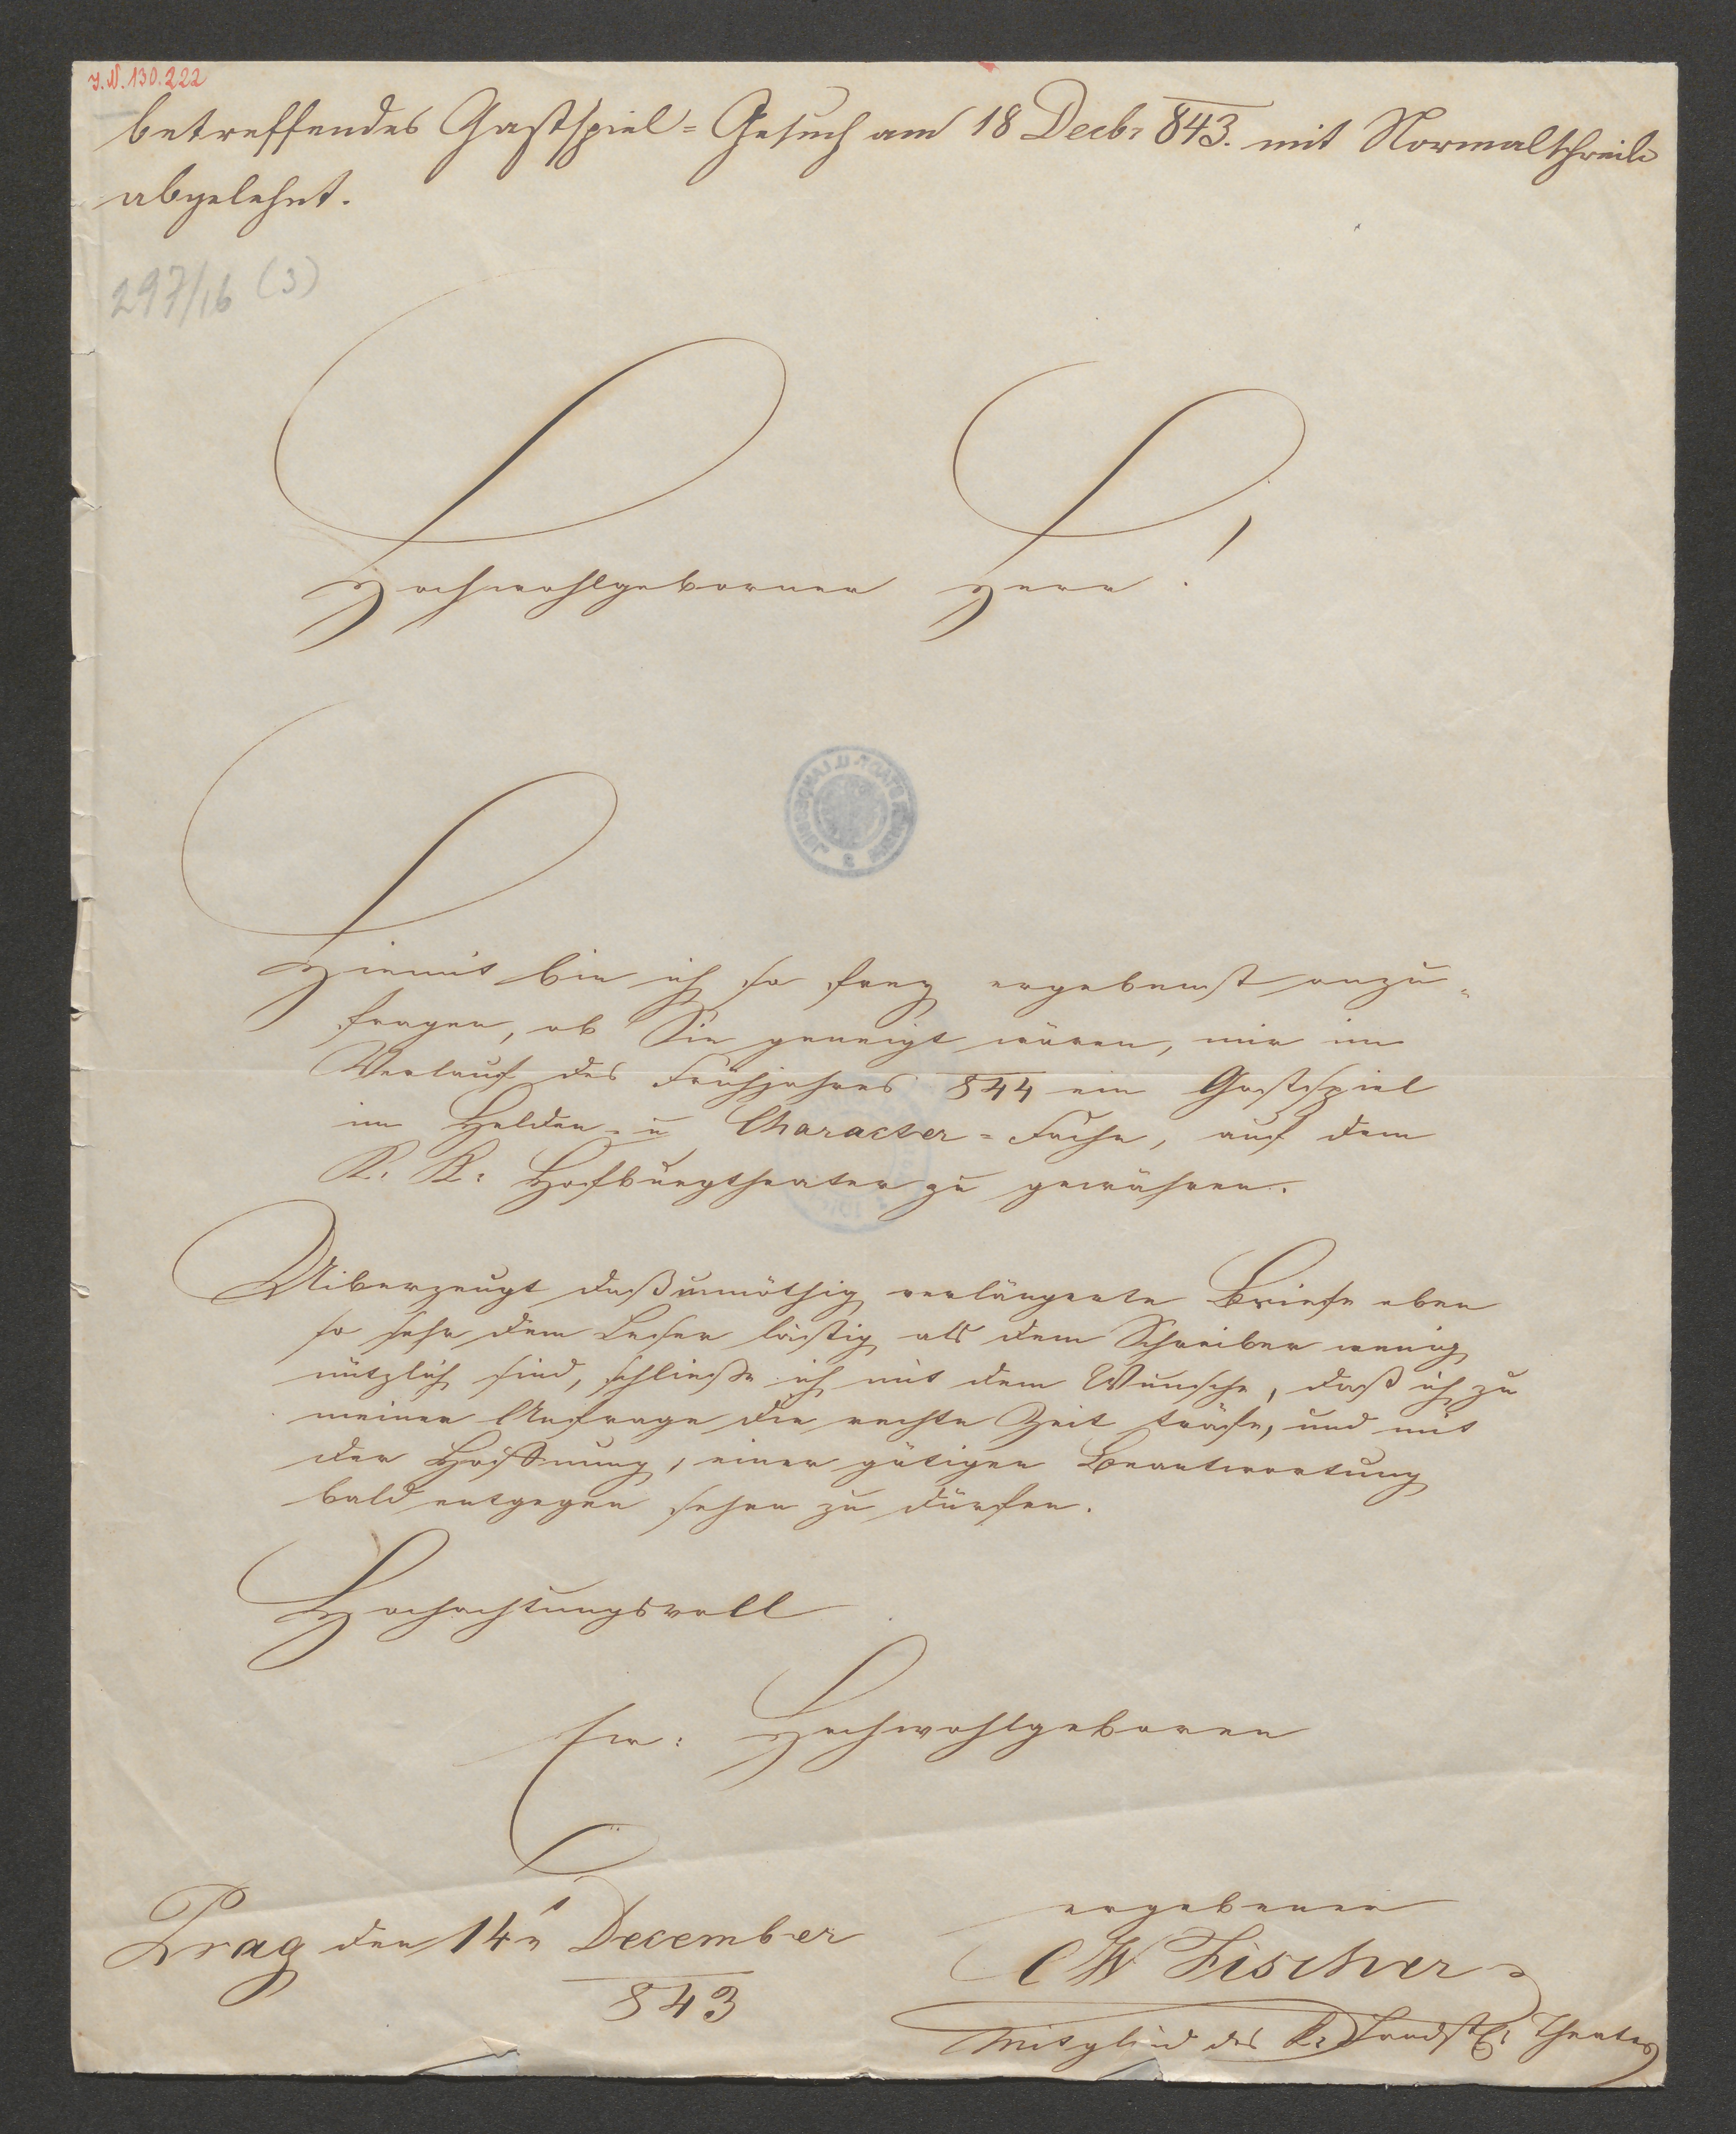 J.N. 130.222
betreffendes Gastspiel=Gesuch am 18 Decbr 843. mit Normalschreib
abgelehnt.
297/16 (3)
Hochwohlgeborner Herr!
Hiemit bin ich so frey ergebenst anzu=
fragen, ob Sie geneigt wären, mir im
Verlauf des Frühjahres 844 ein Gastspiel
im Helden- u Character=Fache, auf dem
K: K: Hofburgtheater zu gewähren.
Uiberzeugt daß unnöthig verlängerte Briefe eben
so sehr dem Leser lästig als dem Schreiber wenig
nützlich sind, schließe ich mit dem Wunsche, daß ich zu
meiner Anfrage die rechte Zeit träfe, und mit
der Hoffnung, einer gütigen Beantwortung
bald entgegen sehen zu dürfen.
Hochachtungsvoll
Ew: Hochwohlgeboren
ergebener
Prag den 14n December
843
C W Fischer
Mitglied des k: Theaters